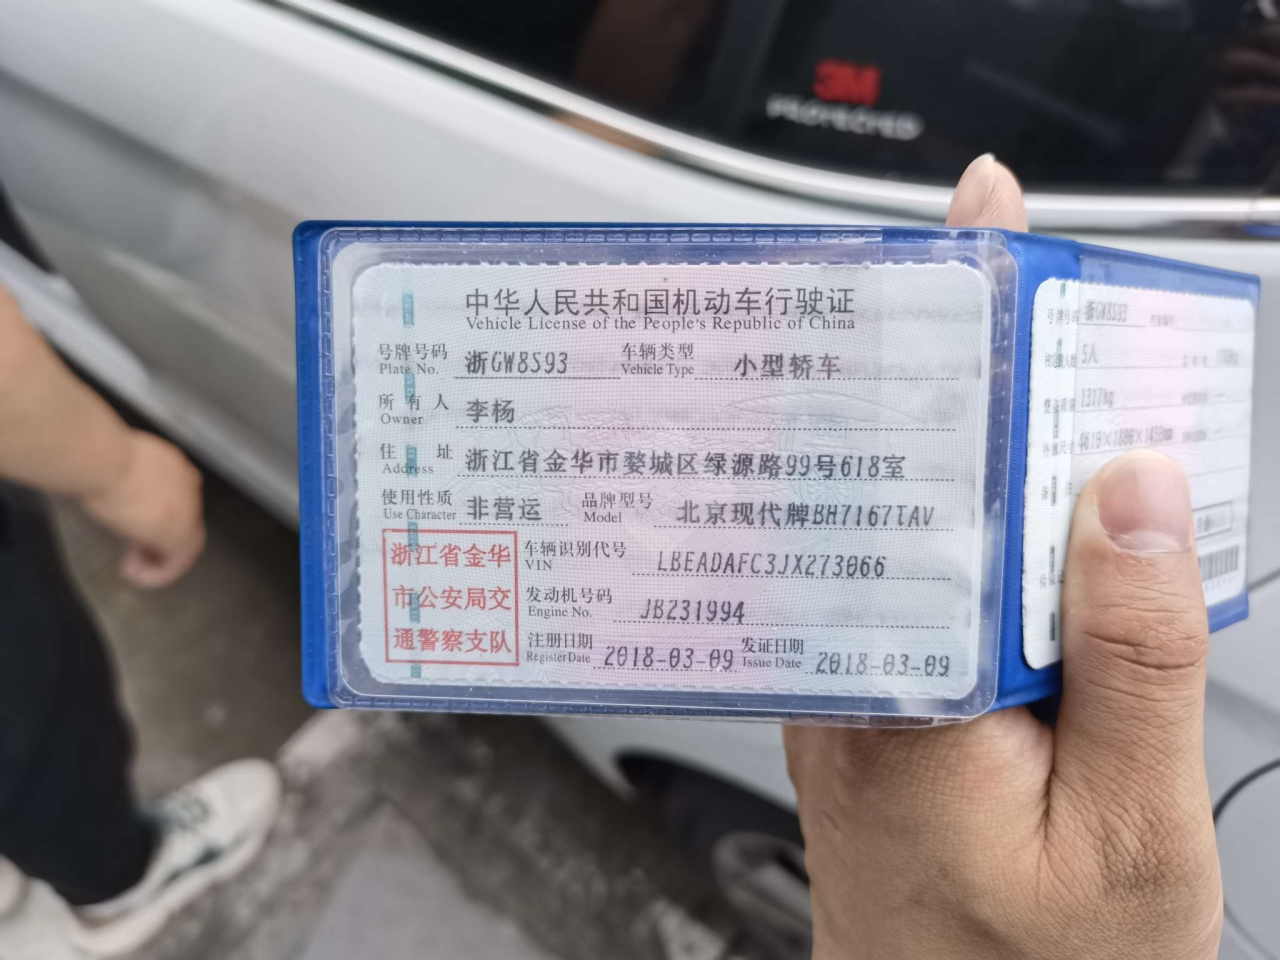 3M
PROTECTED
中华人民共和国机动车行驶证
Vehicle License of the People's Republic of China
号牌号码 浙GW8S93 车辆类型 小型轿车
Plate No. Vehicle Type
所有人 李杨
Owner
住址 浙江省金华市婺城区绿源路99号618室
Address
使用性质 非营运 品牌型号 北京现代牌BH7167TAV
Use Character Model
浙江省金华
市公安局交
通警察支队
车辆识别代号 LBEADAFC3JX273066
VIN
发动机号码 JB231994
Engine No.
注册日期 2018-03-09 发证日期 2018-03-09
Register Date Issue Date
号牌号码 浙GW8S93
5人
1317kg
4610×1800×1450mm